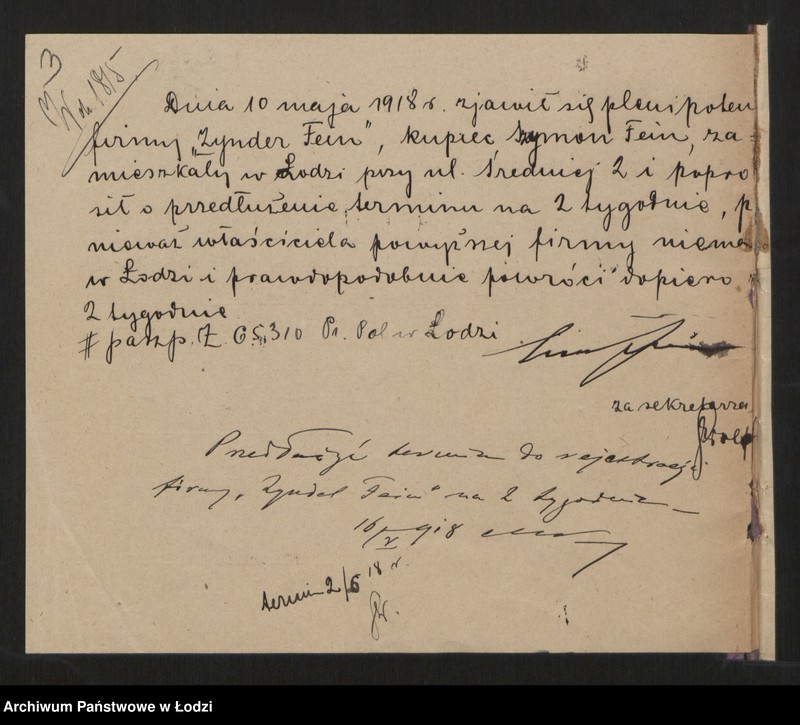 3
Dnia 10 maja 1918 r. zjawił się plenipoten
firmy „Zynder Fein", kupiec Szymon Fein, za-
mieszkały w Łodzi przy ul. Średniej 2 i popro
sił o przedłużenie terminu na 2 tygodnie, p
nieważ właściciela powyższej firmy niema
w Łodzi i prawdopodobnie powróci dopiero
2 tygodnie
# paszp. Ł. G.S. 310 Pr. Pol w Łodzi
za sekretarza
Przedłużyć termin do rejestracji
firmy „Zyndel Fein" na 2 tygodnie
16/V 918
termin 2/6 18 r.
Archiwum Państwowe w Łodzi